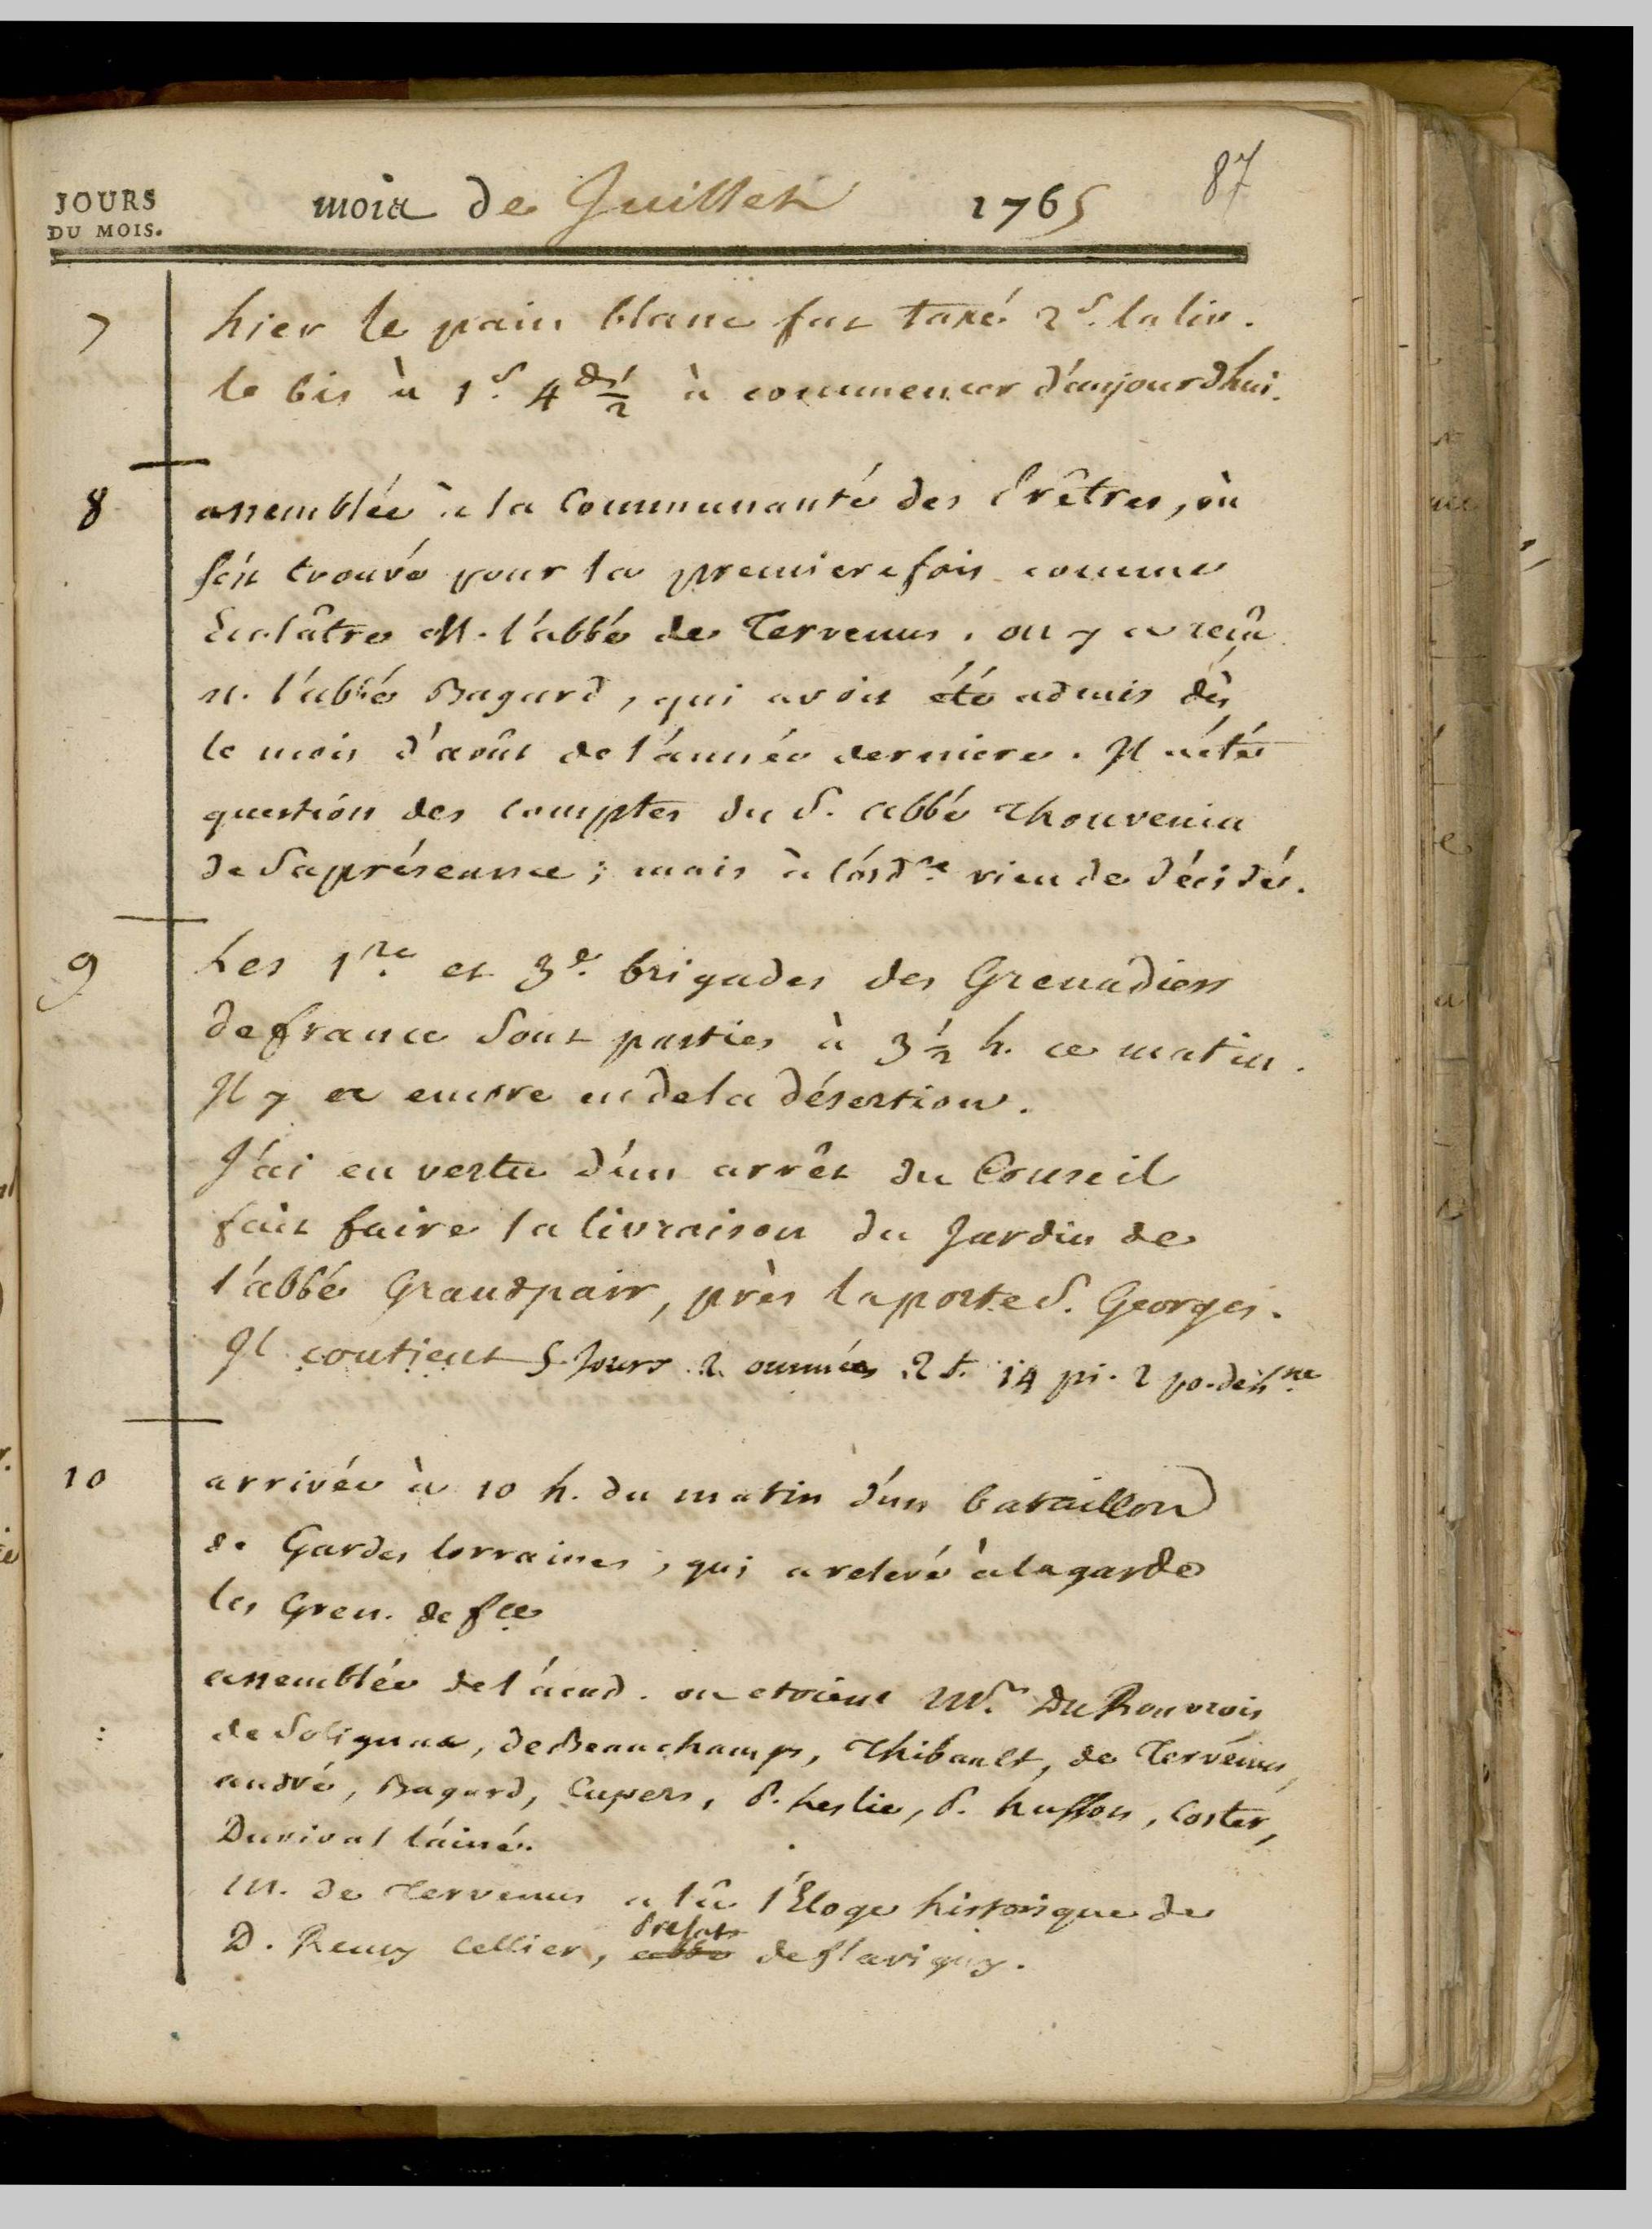 87
JOURS
DU MOIS.
mois de Juillet 1765
7 hier le pain blanc fut taxé 2 s. la liv.
le bis à 1 s. 4 d. 1/2 à commencer d'aujourdhui.
8 assemblée à la Communauté des Prêtres, où
s'est trouvé pour la premiere fois comme
Ecolâtre M. l'abbé de Tervenus. on y a reçu
M. l'abbé Bagard, qui avoit été admis dès
le mois d'août de l'année derniere. Il a été
question des comptes du S. abbé Thouvenin
de sa préséance; mais à l'ord.re rien de décidé.
9 Les 1.re et 3.e brigades des Grenadiers
de france sont parties à 3 1/2 h. ce matin.
Il y a encore eu de la désertion.
J'ai en vertu d'un arrêt du Conseil
fait faire la livraison du Jardin de
l'abbé Grandpair, près la porte S. Georges.
Il contient 5 Jours 2 ommées 2 t. 14 pi. 2 po. de
10 arrivée à 10 h. du matin d'un bataillon
de Gardes lorraines, qui a relevé à la garde
les Gren. de fce
assemblée de l'acad. ou etoient Mrs. Du Rouvrois
de Solignac, de Beauchamps, Thibault, de Tervenus,
andré, Bagard, Cupers, P. Leslie, P. husson, Coster,
Durival l'ainé.
M. de Tervenus a lû l'Eloge historique de
D. Remy Cellier, abbé Prelat de flavigny.